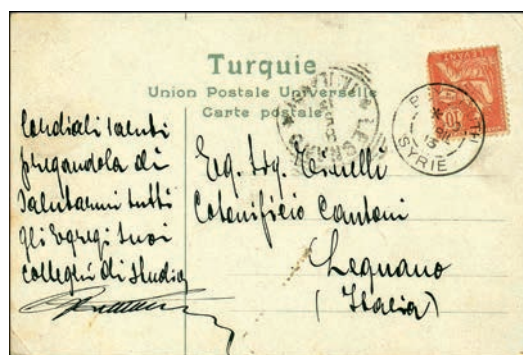 Turquie
Union Postale Universelle
Carte postale
Cordiali saluti
pregandola di
salutarmi tutti
gli Egregi suoi
colleghi di studio
Eg. Sig.
Cotonificio Cantoni
Legnano
(Italia)
LEGNANO
BEYROUTH
SYRIE
10